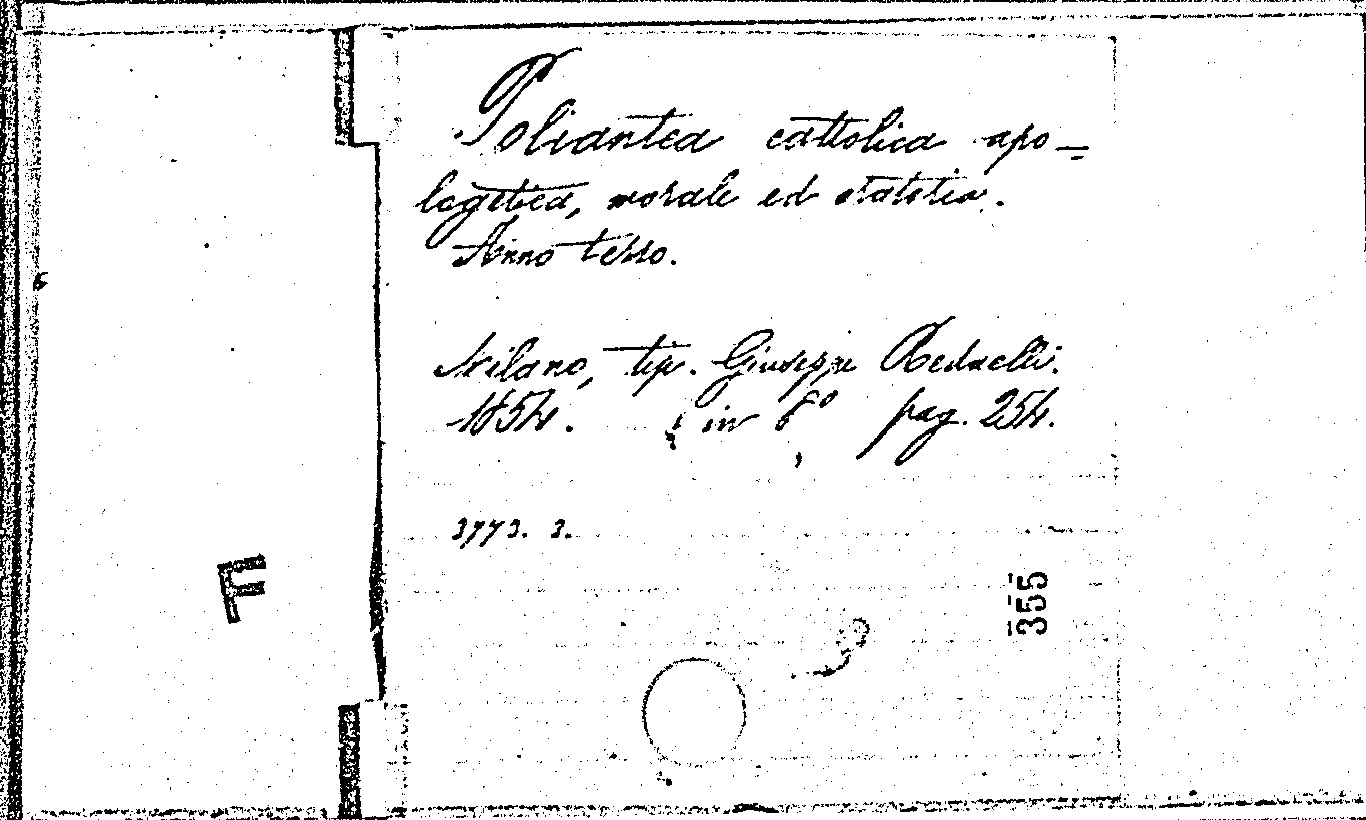 Poliantea cattolica apo=
logetica, morale ed
Anno terzo.
Milano, tip. Giuseppe Redaelli.
1854. in 8° pag. 254.
3773. 3.
F
355